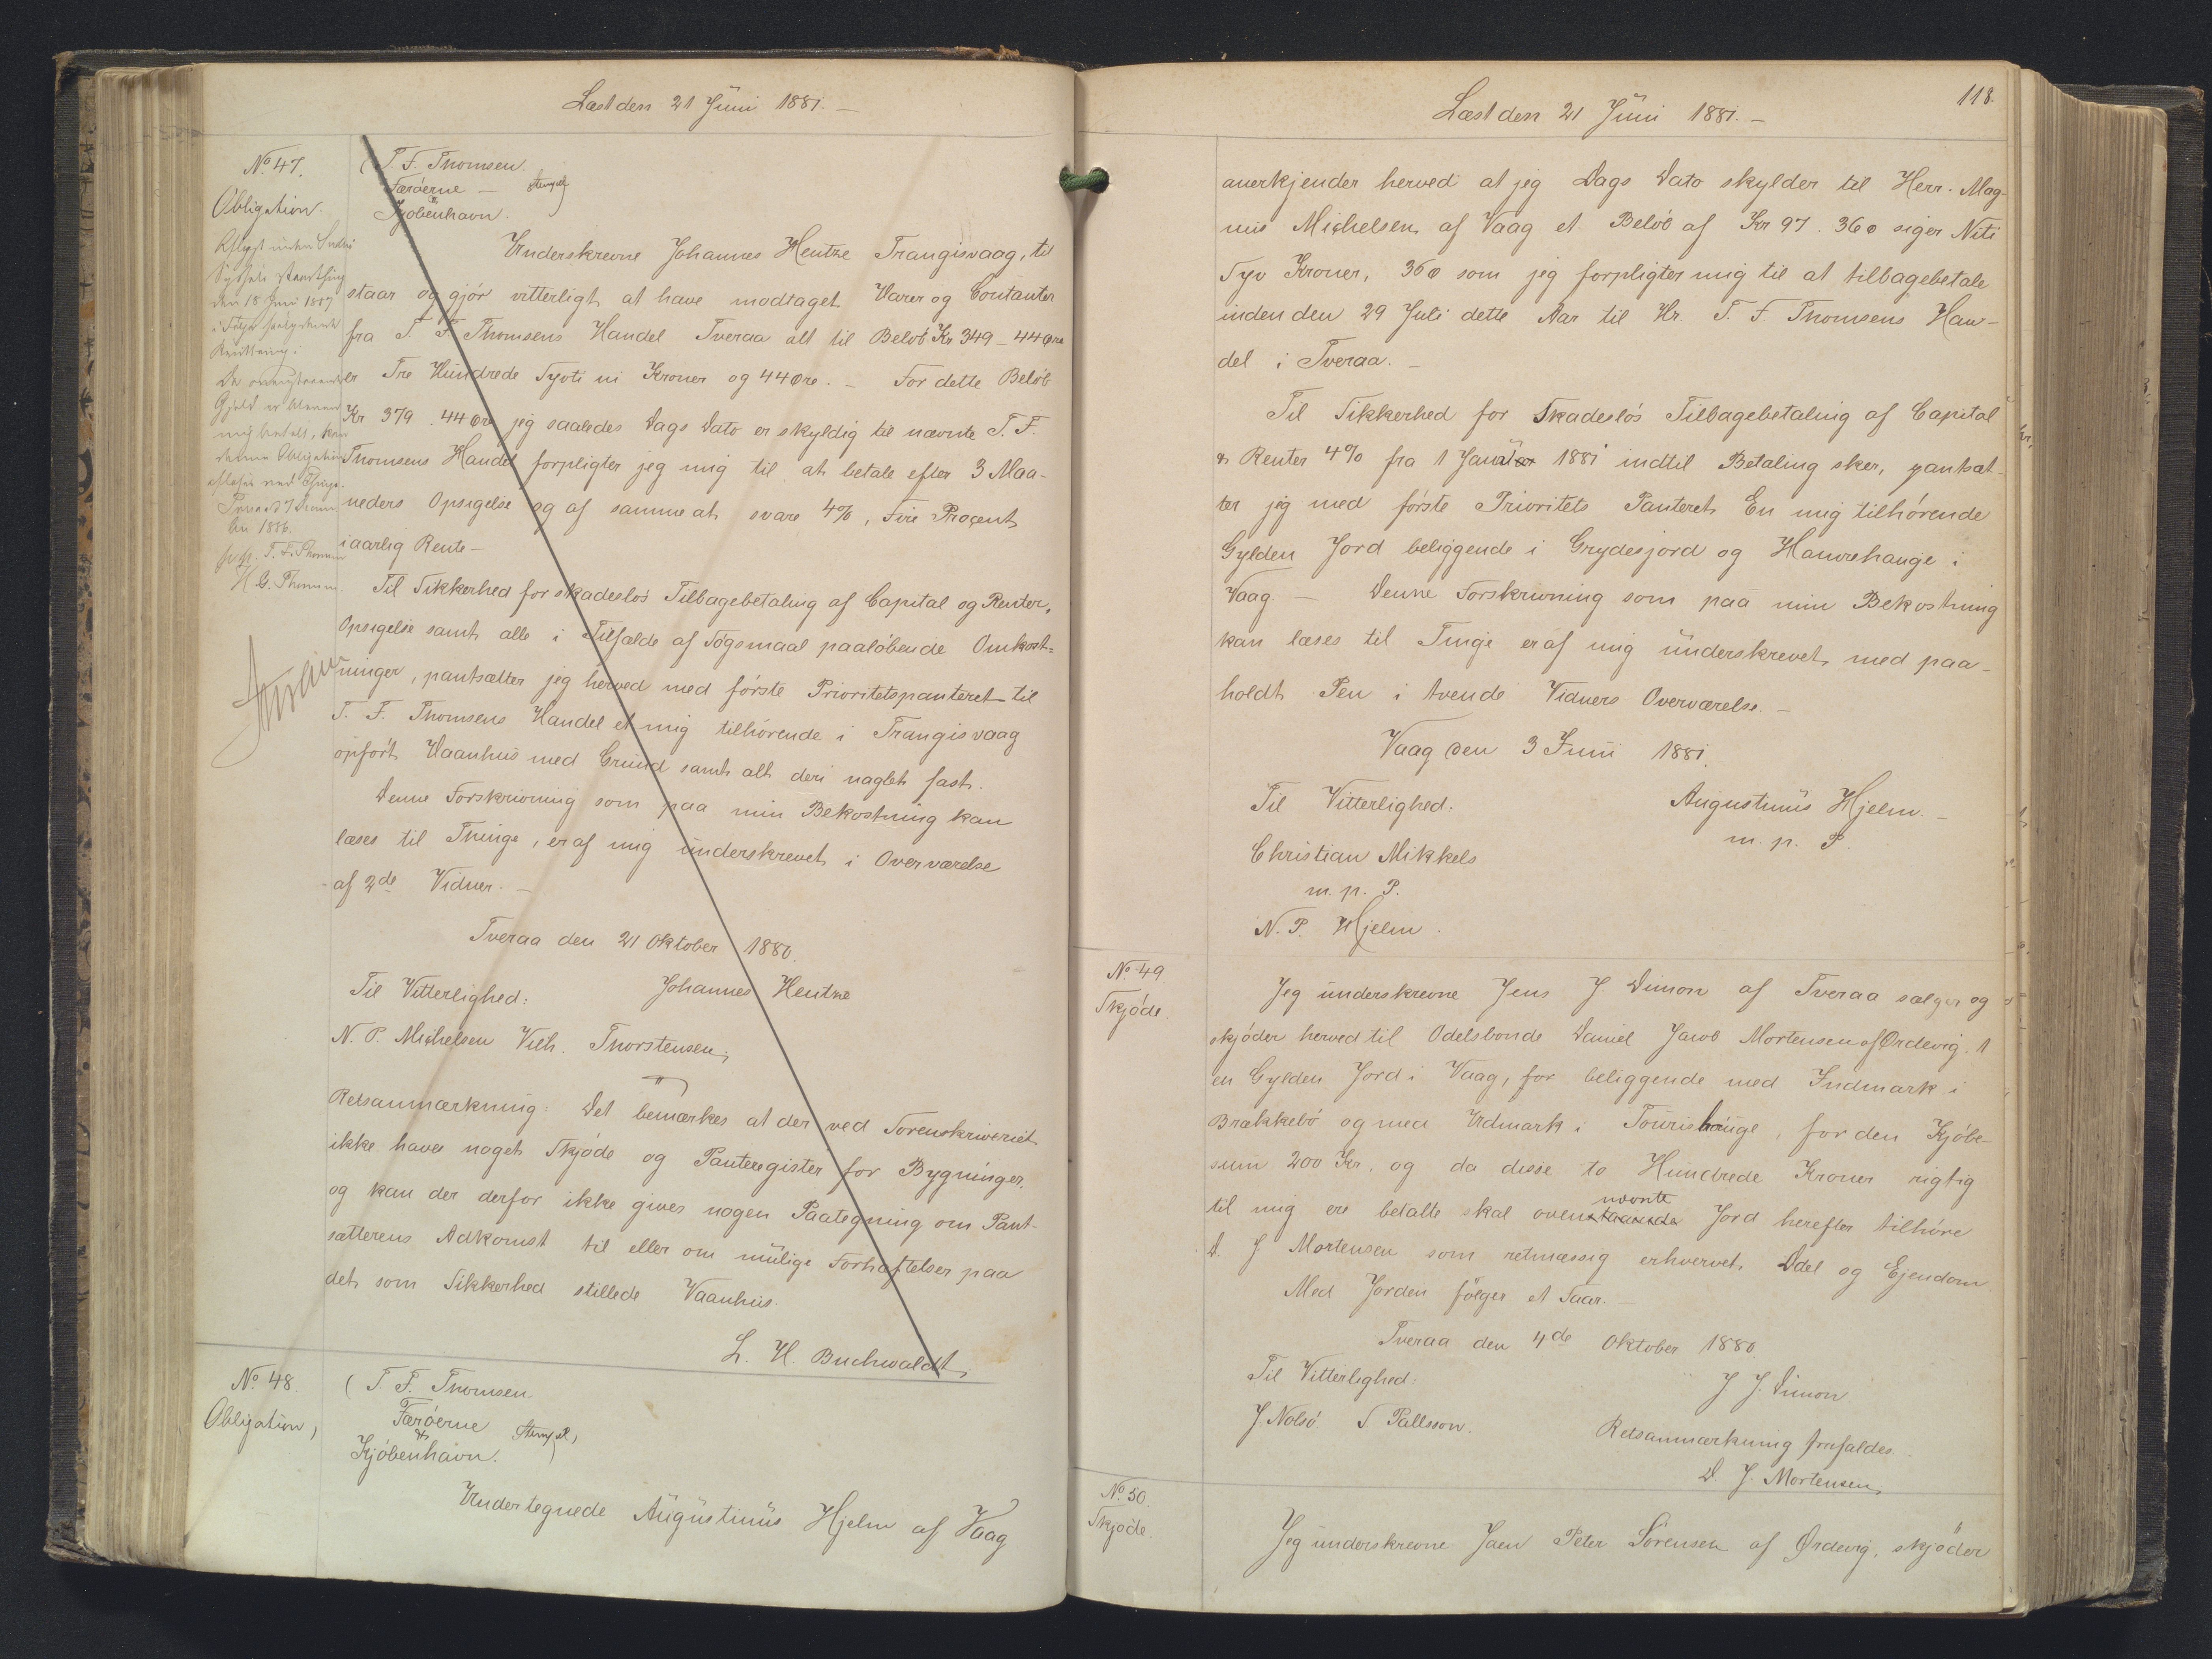 Læst den 21 Juni 1881. —
No. 47.
Obligation.
(T. F. Thomsen.
Færöerne — Stempel)
&
Kjöbenhavn.
Underskrevne Johannes Hentze Trangisvaag, til
staar og gjör vitterligt at have modtaget Varer og Contanter
fra T. F. Thomsens Handel Tveraa alt til Belöb Kr 349 - 44 Øre
er Tre Hundrede Fyrti ni Kroner og 44 Øre. — For dette Belöb
Kr 379. 44 Øre jeg saaledes Dags Dato er skyldig til nævnte T. F.
Thomsens Handel forpligter jeg mig til at betale efter 3 Maa-
neders Opsigelse og af samme at svare 4%, Fire Procent
i aarlig Rente —
Til Sikkerhed for skadeslös Tilbagebetaling af Capital og Renter,
Opsigelse samt alle i Tilfælde af Sögsmaal paalöbende Omkost=
ninger, pantsætter jeg herved med förste Prioritetspanteret til
T. F. Thomsens Handel et mig tilhörende i Trangisvaag
opfört Vaanhus med Grund samt alt deri naglet fast.
Denne Forskrivning som paa min Bekostning kan
læses til Thinge, er af mig underskrevet i Overværelse
af 2de Vidner. —
Tveraa den 21 Oktober 1880.
Til Vitterlighed: Johannes Hentze
N. P. Michelsen Vilh. Thorstensen,
Retsanmærkning: Det bemærkes at der ved Sorenskriveriet
ikke haves noget Skjöde og Panteregister for Bygninger,
og kan der derfor ikke gives nogen Paategning om Pant-
sætterens Adkomst til eller om mulige Forhæftelser paa
det som Sikkerhed stillede Vaanhus.
L. H. Buchwaldt,
Aflyst inden Suderö
Syssels Varthing
den 18 Juni 1887
i Følge saalydende
Kvittering:
Da ovenstaaende
Gjeld er bleven
mig betalt, kan
denne Obligation
aflæses ved Thinge.
Tveraa d 7
1886.
pp. T. F. Thomsen
H. G. Thomsen.
No. 48.
Obligation,
(T. F. Thomsen.
Færöerne Stempel)
&
Kjöbenhavn.
Undertegnede Augustinus Hjelm af Vaag
118.
Læst den 21 Juni 1881. —
anerkjender herved at jeg Dags Dato skylder til Herr. Mag-
nus Michelsen af Vaag et Belöb af Kr 97. 36 ø siger Niti
Syv Kroner, 36 ø som jeg forpligter mig til at tilbagebetale
inden den 29 Juli dette Aar til Hr. T. F. Thomsens Han-
del i Tveraa. —
Til Sikkerhed for Skadeslös Tilbagebetaling af Capital
& Renter 4% fra 1 Januar 1881 indtil Betaling sker, pantsæt-
ter jeg med förste Prioritets Panteret En mig tilhörende
Gylden Jord beliggende i Grydesjord og Hamrehauge i
Vaag — Denne Forskrivning som paa min Bekostning
kan læses til Tinge er af mig underskrevet med paa-
holdt Pen i tvende Vidners Overværelse. —
Vaag den 3 Juni 1881.
Til Vitterlighed: Augustinus Hjelm. —
m. p. P.
Christian Mikkels
m. p. P.
N. P. Hjelm.
No. 49
Skjöde.
Jeg underskrevne Jens J. Dimon af Tveraa sælger og
skjöder herved til Odelsbonde Daniel Jacob Mortensen af Ördevig. 1
en Gylden Jord i Vaag, for beliggende med Indmark i
Brækkebö og med Udmark i Tourishauge, for den Kjöbe-
sum 200 Kr. og da disse to Hundrede Kroner rigtig
nævnte
til mig ere betalte skal ovenstaaende Jord herefter tilhöre
D. J Mortensen som retmæssig erhvervet Odel og Ejendom
Med Jorden fölger et Faar. —
Tveraa den 4de Oktober 1880.
Til Vitterlighed: J J. Dimon
J. Nolsö S Pallsson.
Retsanmærkning frafaldes. —
D. J. Mortensen,
No. 50.
Skjöde.
Jeg underskrevne Joen Peter Sörensen af Ördevig, skjöder